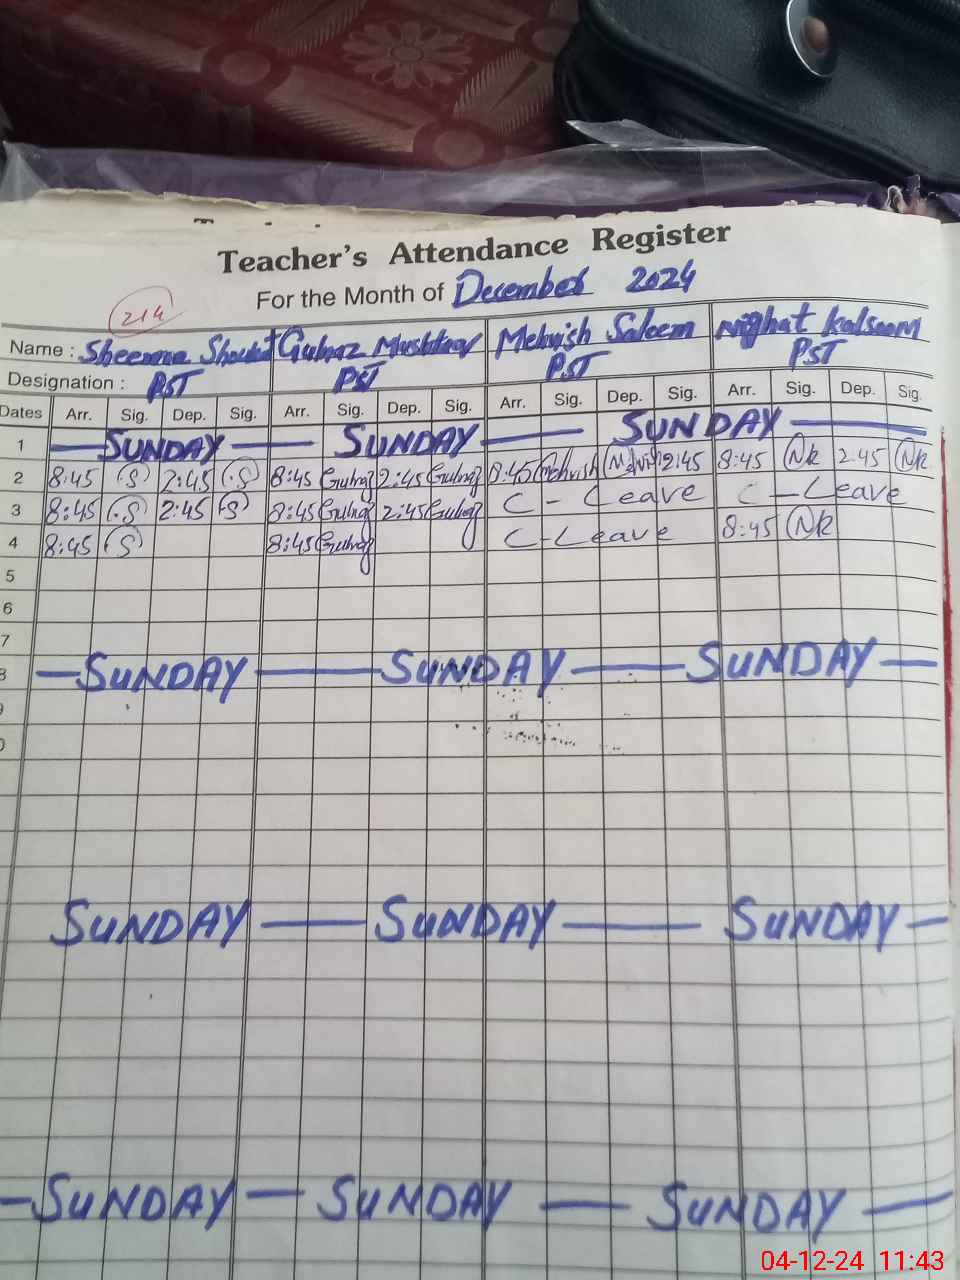 Teacher's Attendance Register
For the Month of December 2024
214
Name : Sheema Shoukat Gulnaz Mushtaq Mehvish Saleem Nighat Kalsoom
Designation : PST PST PST PST
Dates Arr. Sig. Dep. Sig. Arr. Sig. Dep. Sig. Arr. Sig. Dep. Sig. Arr. Sig. Dep. Sig.
1 SUNDAY SUNDAY SUNDAY
2 8:45 S 2:45 S 8:45 Gulnaz 2:45 Gulnaz 8:45 Mehvish Mehvish 2:45 8:45 Nk 2.45 Nk
3 8:45 S 2:45 S 8:45 Gulnaz 2:45 Gulnaz C - Leave C - Leave
4 8:45 S 8:45 Gulnaz C - Leave 8:45 Nk
5
6
7
8 SUNDAY SUNDAY SUNDAY
SUNDAY SUNDAY SUNDAY
SUNDAY SUNDAY SUNDAY
04-12-24 11:43